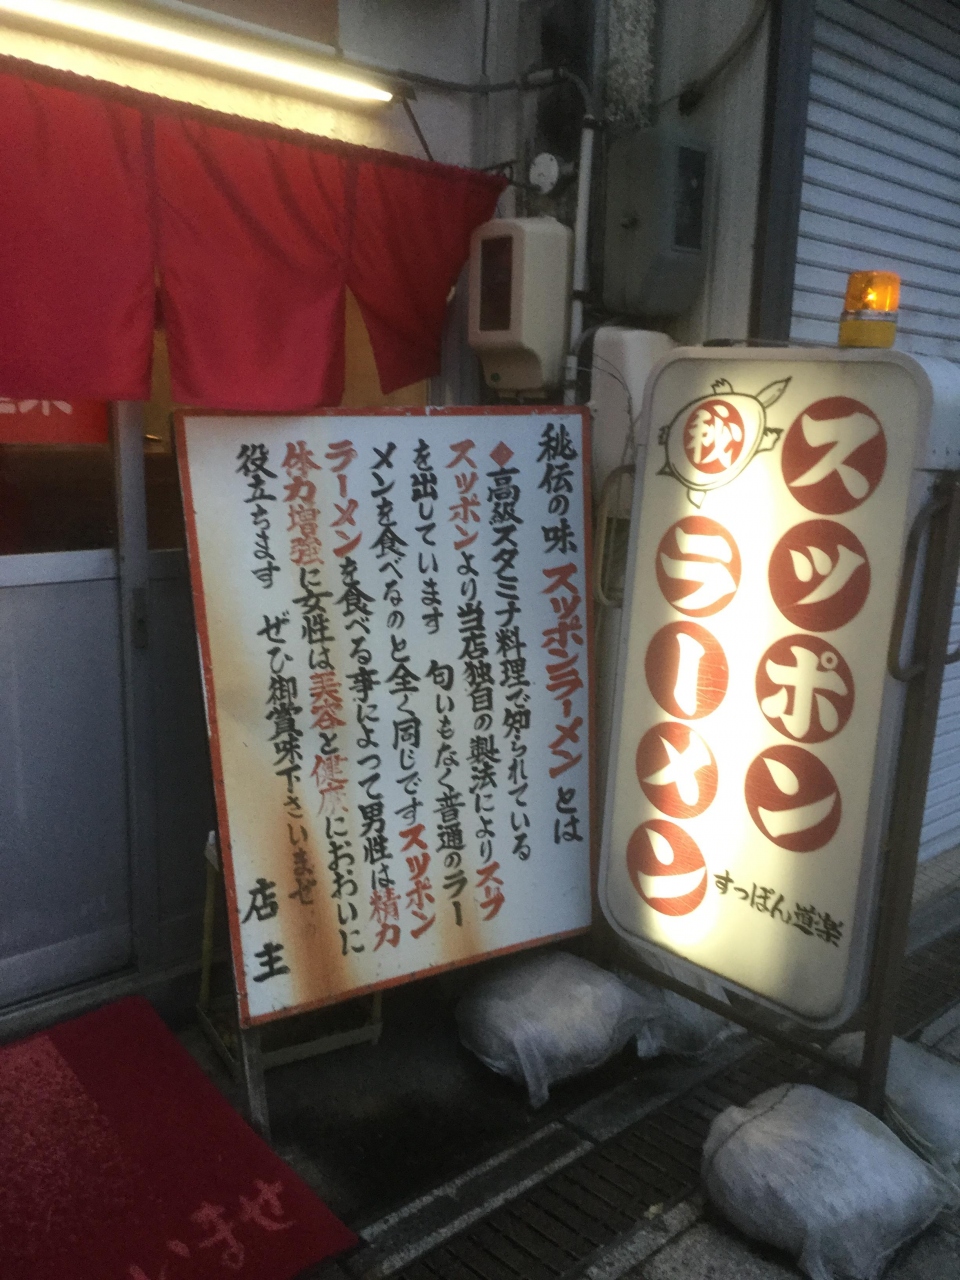 秘伝の味 スッポンラーメンとは
◆高級スタミナ料理で知られている
スッポンより当店独自の製法によりスープ
を出しています 匂いもなく普通のラー
メンを食べるのと全く同じですスッポン
ラーメンを食べる事によって男性は精力
体力増強に女性は美容と健康におおいに
役立ちます ぜひ御賞味下さいませ。
店主
スッポン
㊙ラーメン
すっぽん道楽
いませ